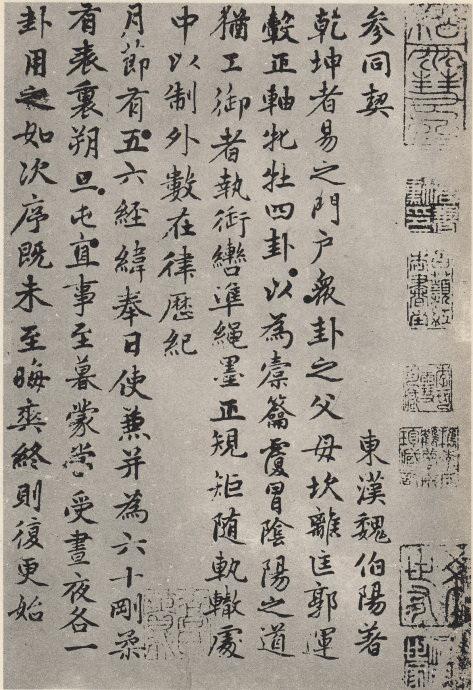 參同契
東漢魏伯陽著
乾坤者易之門戶衆卦之父母坎離匡郭運
轂正軸牝牡四卦以為橐籥覆冒陰陽之道
猶工御者執銜轡準繩墨正規矩随軌轍處
中以制外數在律歷紀
月節有五六経緯奉日使兼并為六十剛柔
有表裏朔旦屯直事至暮蒙當受晝夜各一
卦用之如次序既未至晦爽終則復更始